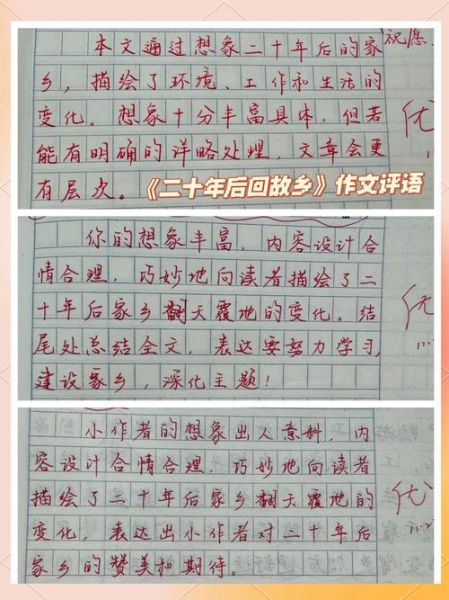 本文通过想象二十年后的家
乡，描绘了环境、工作和生活的
变化。想象十分丰富具体，但若
能有明确的详略处理，文章会更
有层次。
祝愿
优
《二十年后回故乡》作文评语
你的想象丰富，内容设计合
情合理，巧妙地向读者描绘了二
十年后家乡翻天覆地的变化。结
尾处总结全文，表达要努力学习，
建设家乡，深化主题！
优
小作者的想象出人意料，内
容设计合情合理，巧妙地向读者
描绘了二十年后家乡翻天覆地的
变化，表达出小作者对二十年后
家乡的赞美和期待。
优
11.2